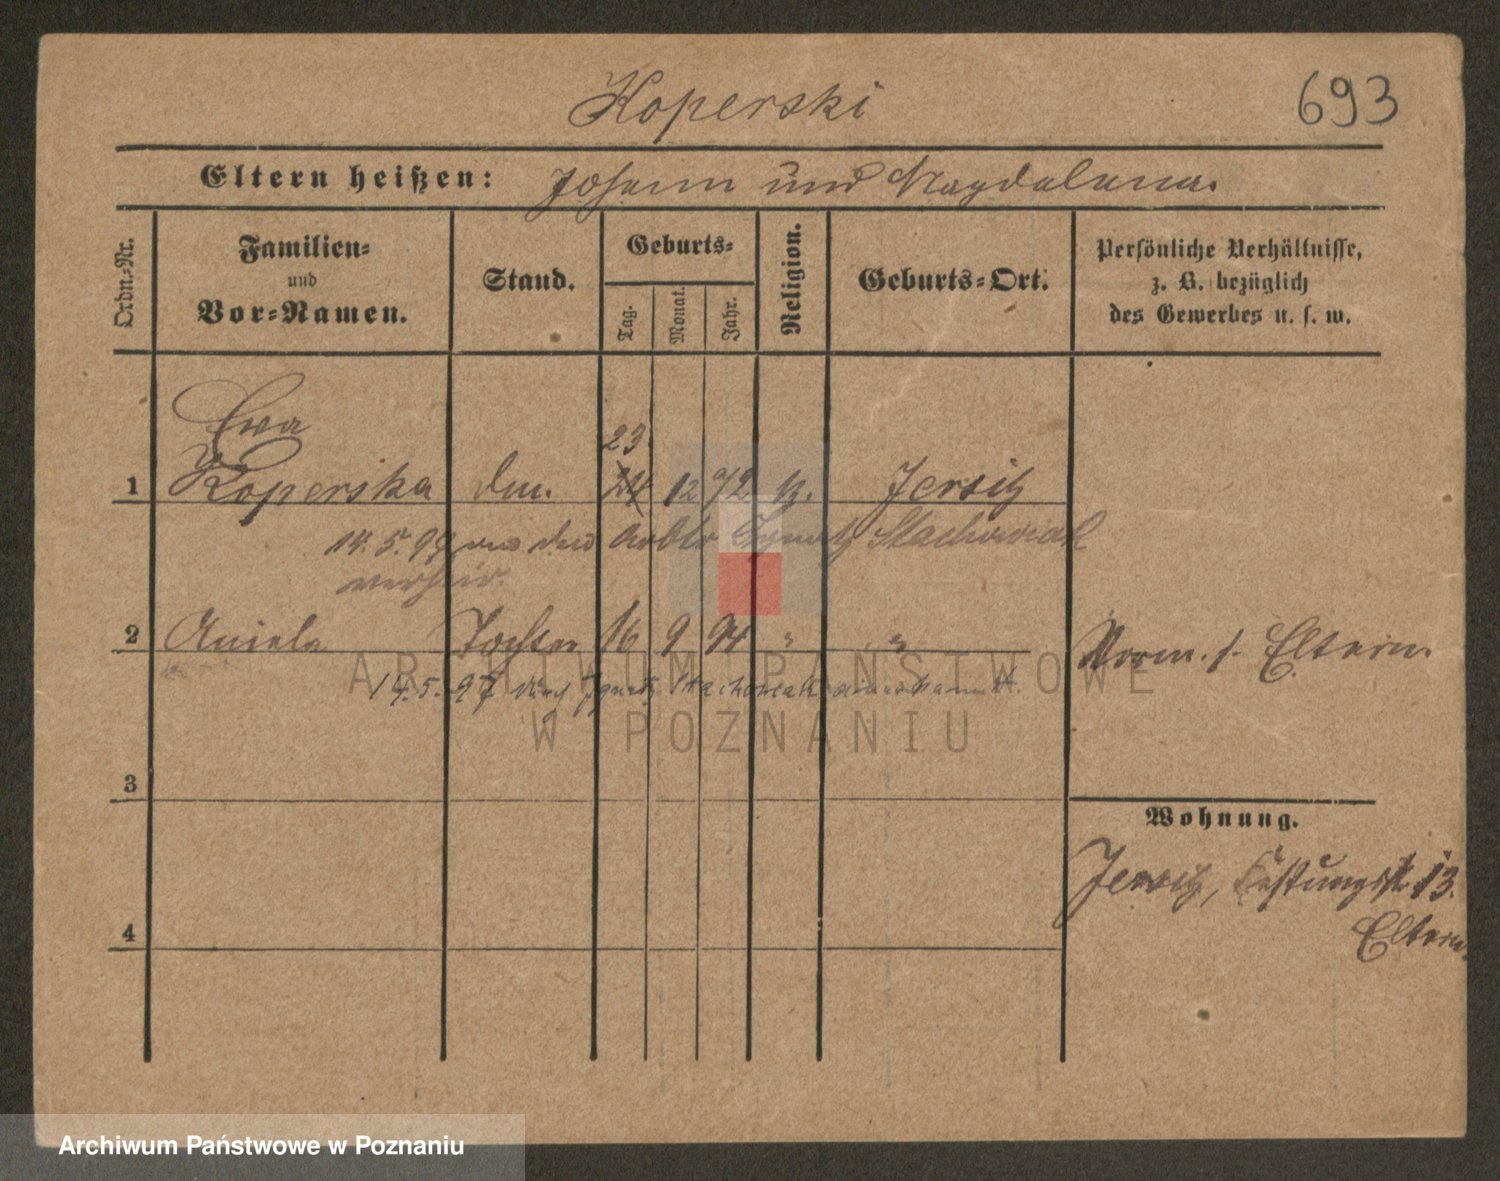 Koperski
693
Eltern heißen: Johann und Magdalena.
Ordn.=Nr.
Familien= und Vor=Namen.
Stand.
Geburts=
Tag.
Monat.
Jahr.
Religion.
Geburts=Ort.
Persönliche Verhältnisse,
z. B. bezüglich
des Gewerbes u. s. w.
Ewa
23
1 Koperska 24 12 72 k. Jersitz
14.5.99 Stachowiak
verheir.
2 Aniela Tochter 16 9 94 " " Vorm. s. Eltern.
14.5.97 Stachowiak anerkannt.
ARCHIWUM PAŃSTWOWE
W POZNANIU
3
Wohnung.
Jersitz, 13.
Eltern.
4
Archiwum Państwowe w Poznaniu